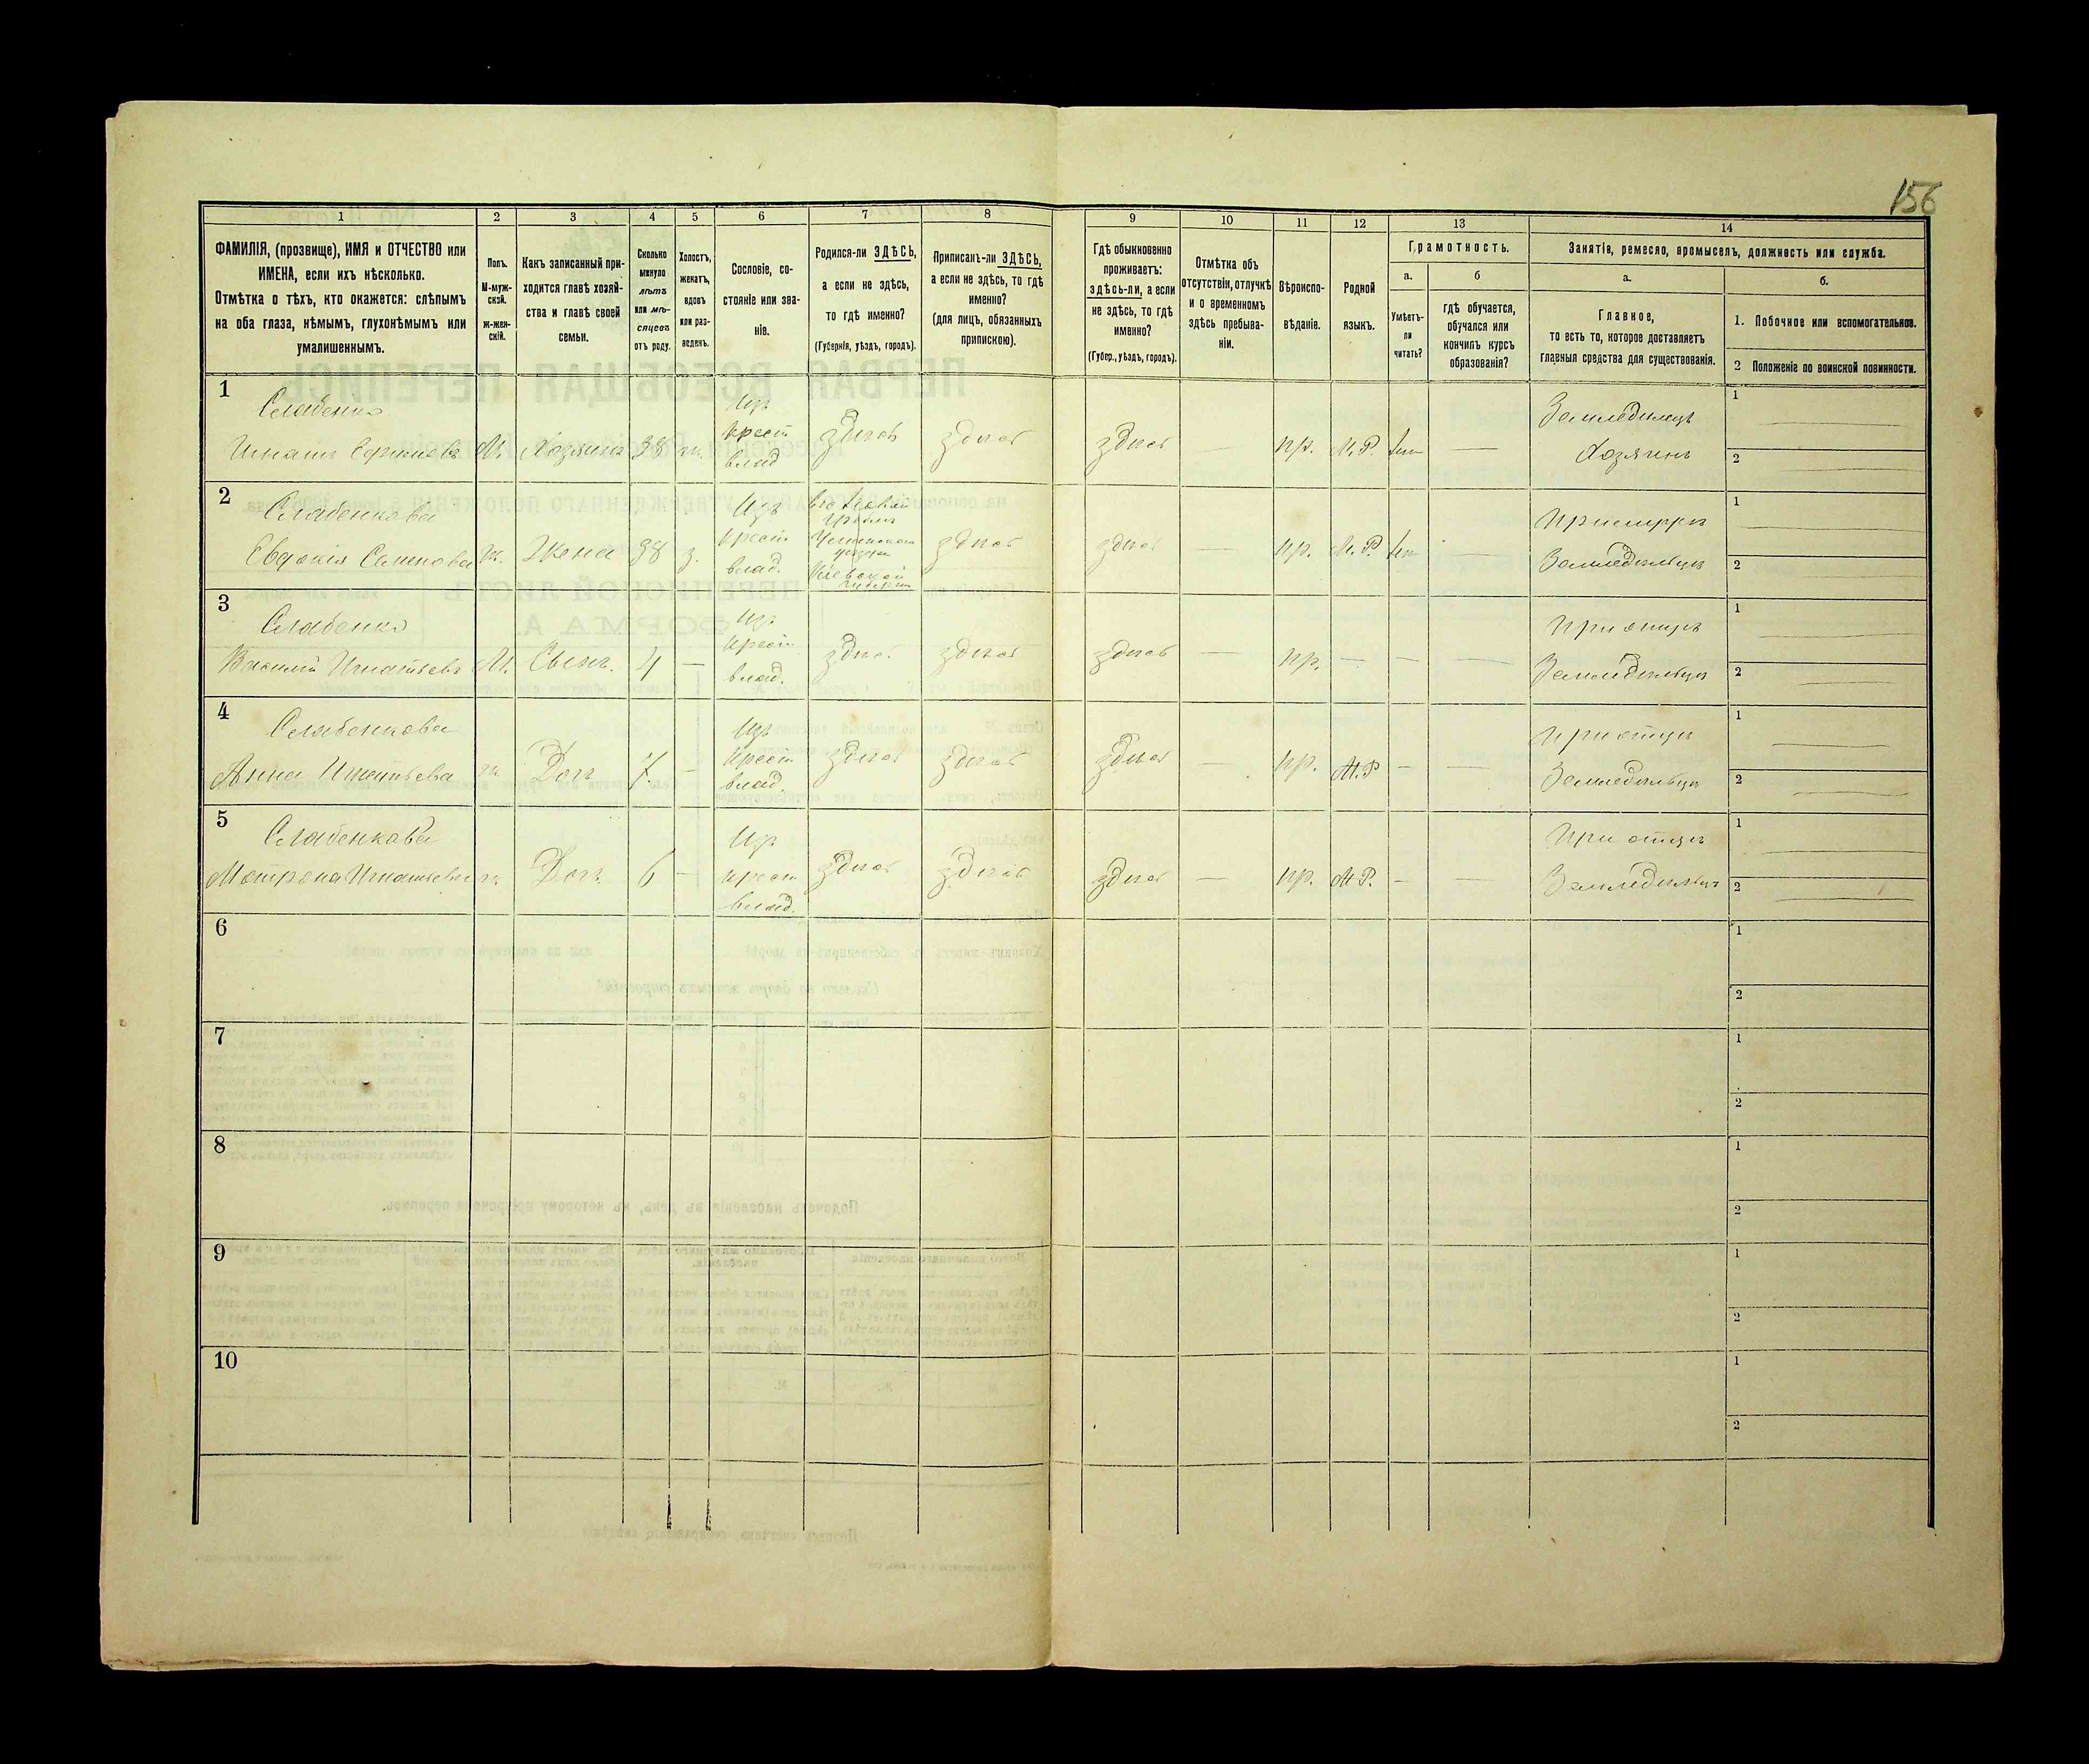 156
1
2
3
4
5
6
7
8
9
10
11
12
13
14
ФАМИЛІЯ, (прозвище), ИМЯ и ОТЧЕСТВО или
ИМЕНА, если ихъ нѣсколько.
Отмѣтка о тѣхъ, кто окажется: слѣпымъ
на оба глаза, нѣмымъ, глухонѣмымъ или
умалишеннымъ.
Полъ.
М-муж-
ской.
ж-жен-
скій.
Какъ записанный при-
ходится главѣ хозяй-
ства и главѣ своей
семьи.
Сколько
минуло
лѣтъ
или мѣ-
сяцевъ
отъ роду.
Холостъ,
женатъ,
вдовъ
или раз-
веденъ.
Сословіе, со-
стояніе или зва-
ніе.
Родился-ли ЗДѢСЬ,
а если не здѣсь,
то гдѣ именно?
(Губернія, уѣздъ, городъ).
Приписанъ-ли ЗДѢСЬ,
а если не здѣсь, то гдѣ
именно?
(для лицъ, обязанныхъ
припискою).
Гдѣ обыкновенно
проживаетъ:
здѣсь-ли, а если
не здѣсь, то гдѣ
именно?
(Губер., уѣздъ, городъ).
Отмѣтка объ
отсутствіи, отлучкѣ
и о временномъ
здѣсь пребыва-
ніи.
Вѣроиспо-
вѣданіе.
Родной
языкъ.
Грамотность.
а.
Умѣетъ-
ли
читать?
б
гдѣ обучается,
обучался или
кончилъ курсъ
образованія?
Занятія, ремесло, промыселъ, должность или служба.
а.
Главное,
то есть то, которое доставляетъ
главныя средства для существованія.
б.
1. Побочное или вспомогательное.
2 Положеніе по воинской повинности.
1
Слабенко
М. Хозяинъ 38 ж.
Изъ
крест
влад
здѣсь здѣсь здѣсь — пр. М.Р. —
Земледѣлецъ
Хозяинъ
1
2
2
Слабенкова
Евдокія Семенова ж. Жена 38 з.
Изъ
крест
влад.
уѣзда
Кіевской
губерніи
здѣсь здѣсь — пр. М.Р —
Земледѣльцѣ
1
2
3
Слабенко
Василій Игнатьевъ М. Сынъ. 4 —
Изъ
крест
влад.
здѣсь здѣсь здѣсь — пр. — — —
При отцѣ
Земледѣльцѣ
1
2
4
Слабенкова
Анна Игнатьева ж. Доч 7. —
Изъ
крест
влад.
здѣсь здѣсь здѣсь — пр. М.Р — —
При отцѣ
Земледѣльцѣ
1
2
5
Слабенкова
Мотрона Игнатьева ж. Доч. 6 —
Изъ
крест
влад.
здѣсь здѣсь здѣсь — пр. М.Р. — —
При отцѣ
Земледѣльцѣ
1
2
6
1
2
7
1
2
8
1
2
9
1
2
10
1
2